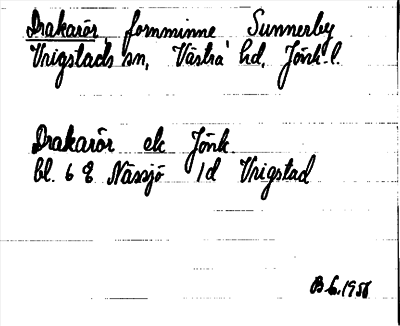 Drakarör, fornminne Sunnerby
Vrigstads sn, Västra hd, Jönk. l.
Drakarör ek Jönk.
bl. 6 E Nässjö 1d Vrigstad